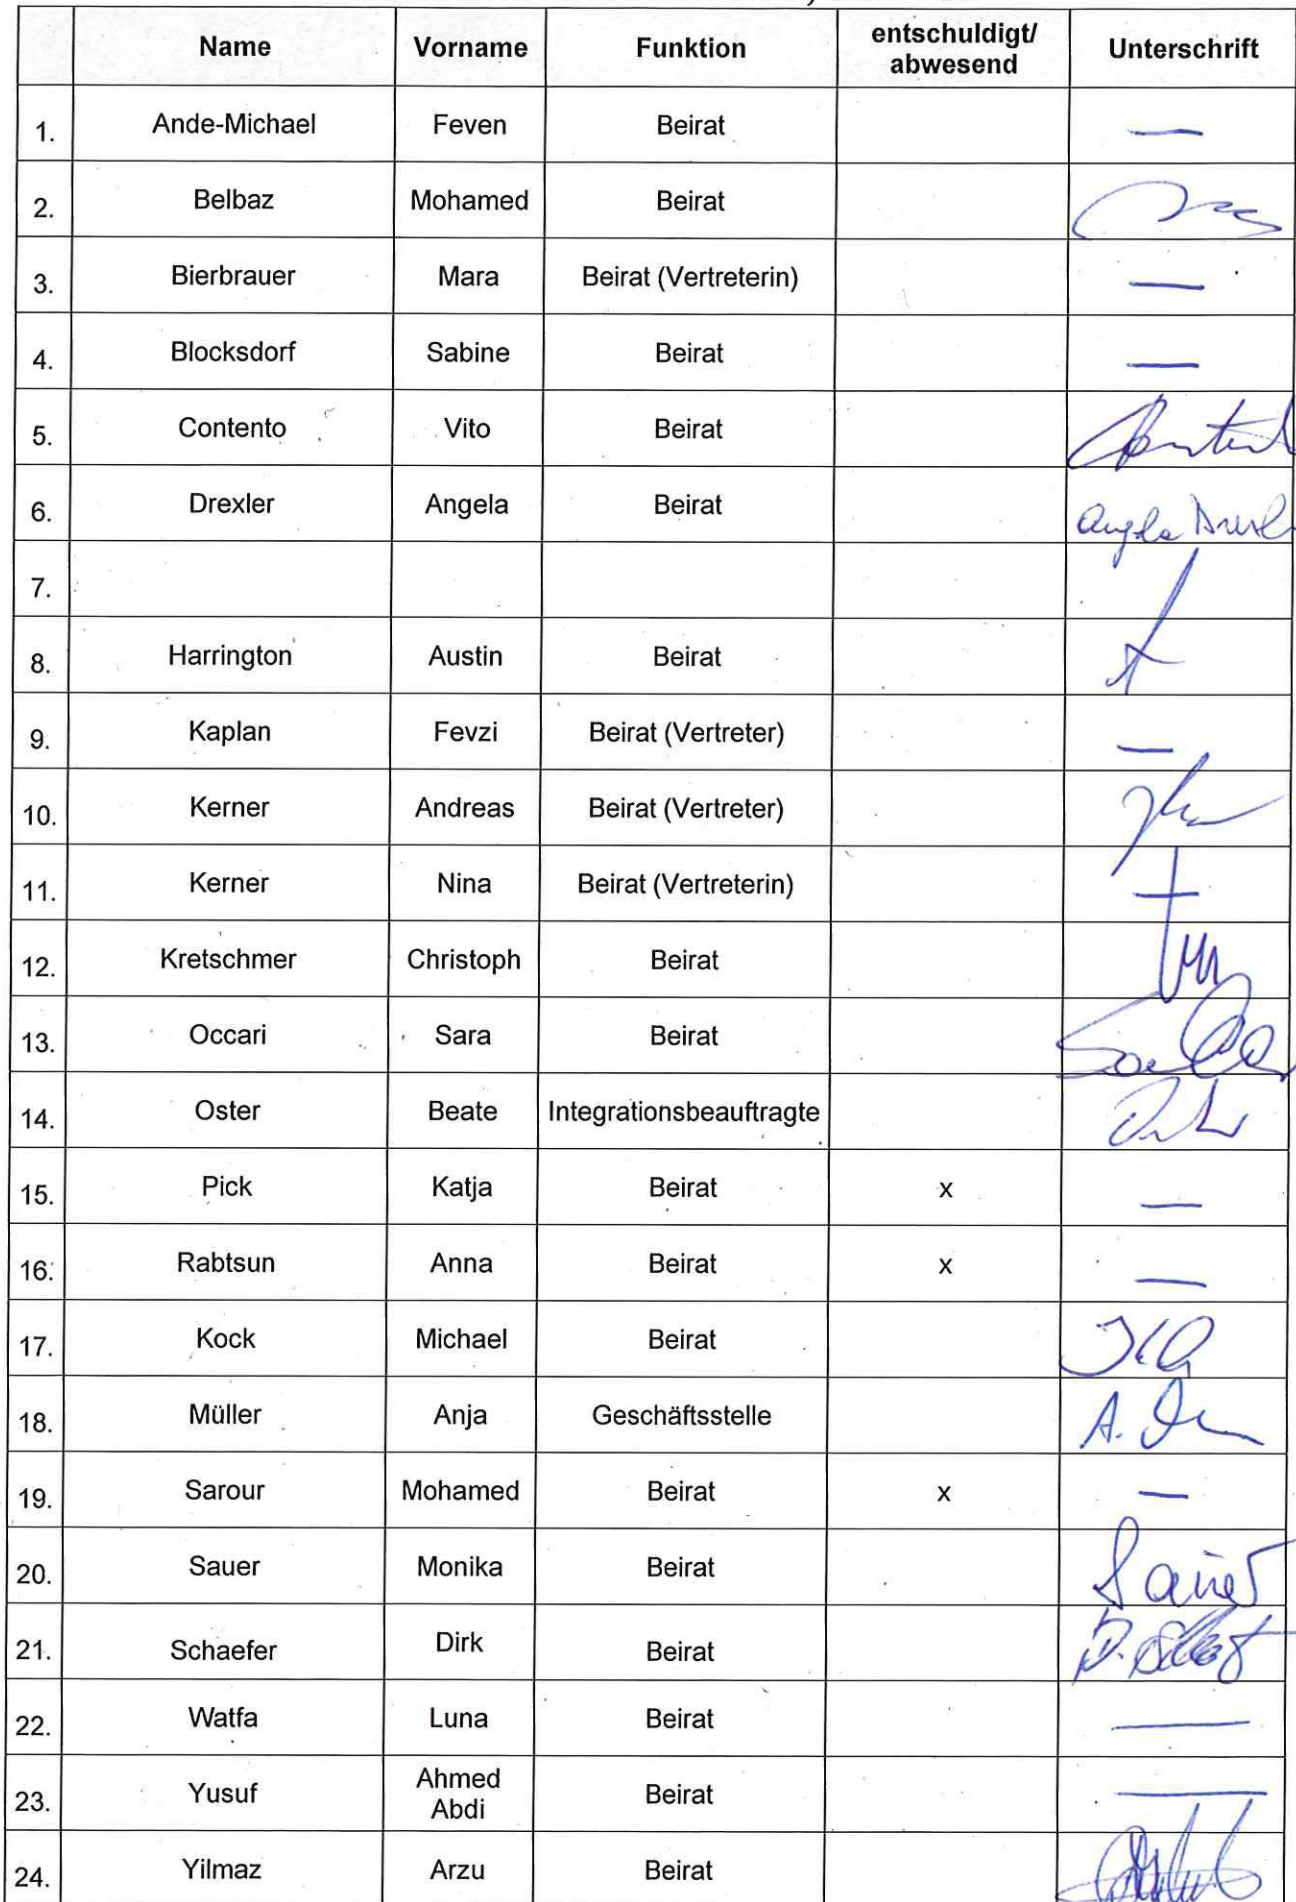 Name Vorname Funktion entschuldigt/ abwesend Unterschrift
1. Ande-Michael Feven Beirat —
2. Belbaz Mohamed Beirat
3. Bierbrauer Mara Beirat (Vertreterin) —
4. Blocksdorf Sabine Beirat —
5. Contento Vito Beirat
6. Drexler Angela Beirat Angela
7.
8. Harrington Austin Beirat
9. Kaplan Fevzi Beirat (Vertreter) —
10. Kerner Andreas Beirat (Vertreter)
11. Kerner Nina Beirat (Vertreterin) —
12. Kretschmer Christoph Beirat
13. Occari Sara Beirat
14. Oster Beate Integrationsbeauftragte
15. Pick Katja Beirat x —
16. Rabtsun Anna Beirat x —
17. Kock Michael Beirat
18. Müller Anja Geschäftsstelle A.
19. Sarour Mohamed Beirat x —
20. Sauer Monika Beirat Sauer
21. Schaefer Dirk Beirat D.
22. Watfa Luna Beirat —
23. Yusuf Ahmed Abdi Beirat —
24. Yilmaz Arzu Beirat